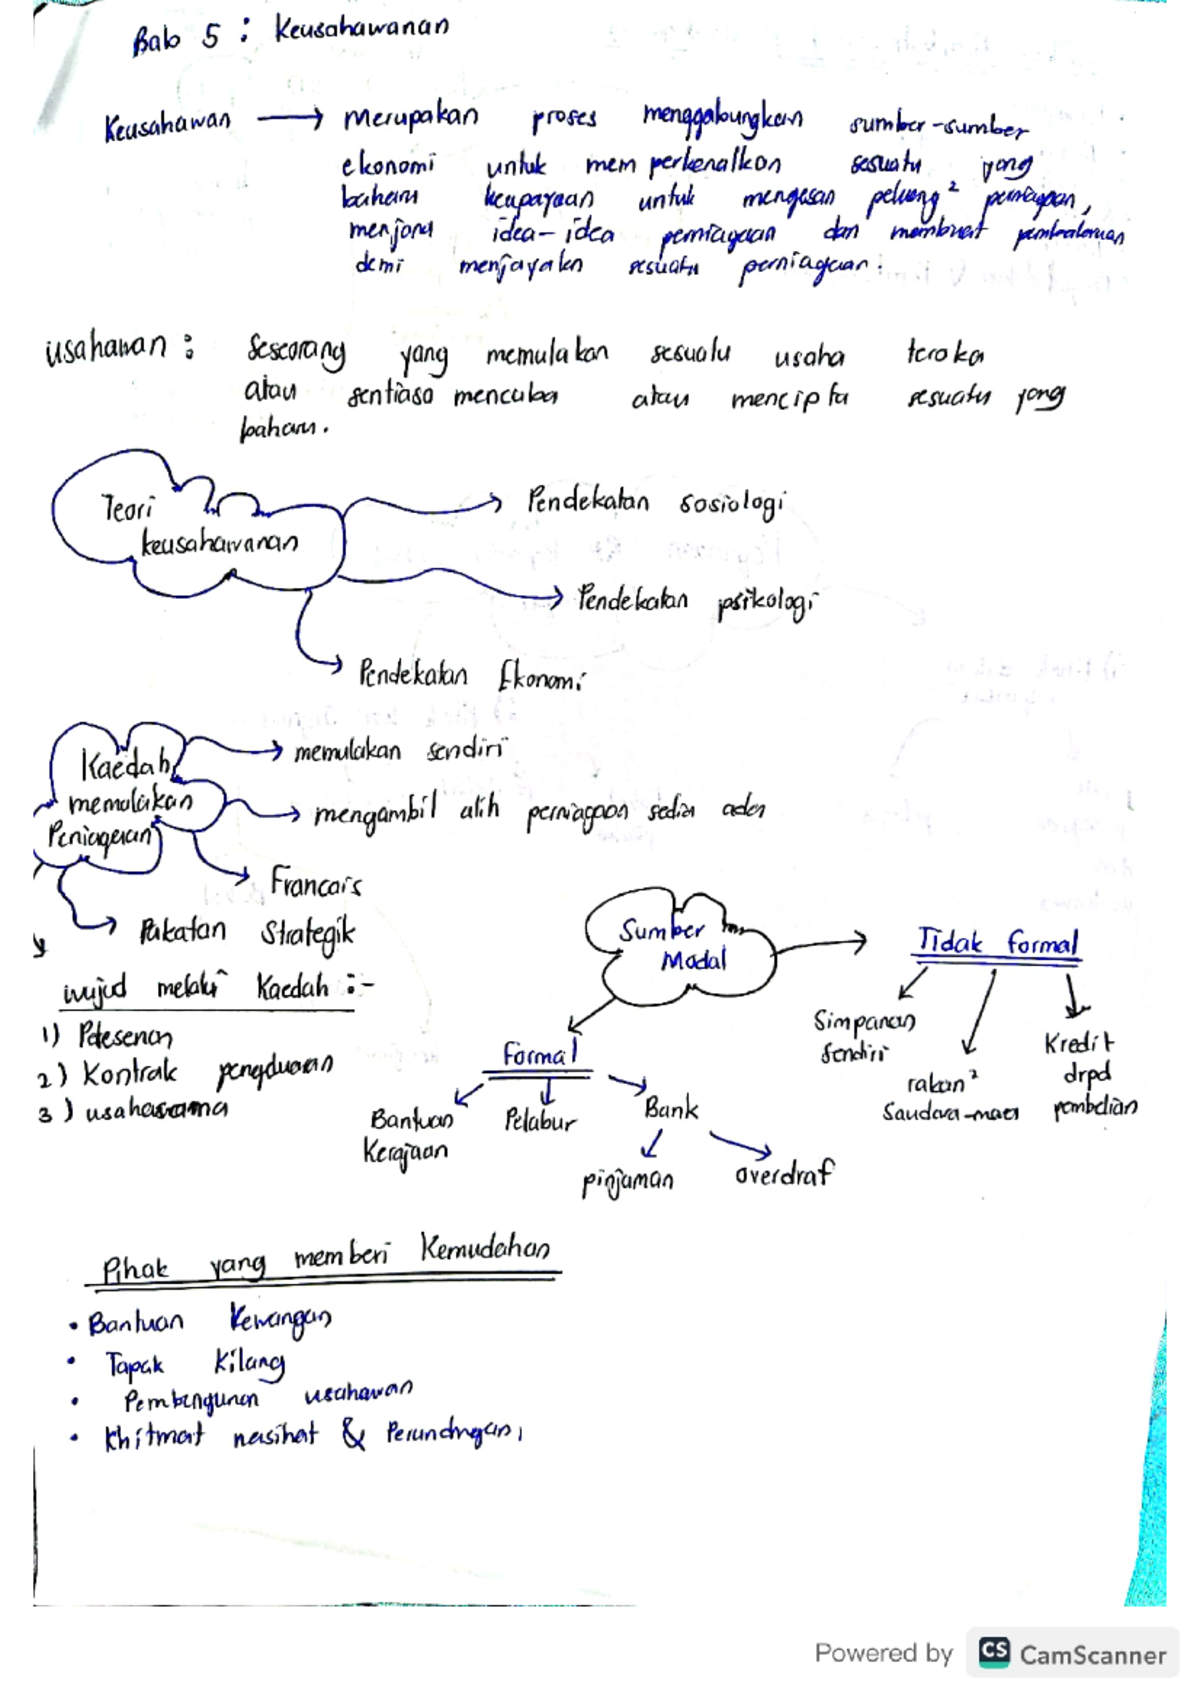 Bab 5 : Keusahawanan
Keusahawan → merupakan proses menggabungkan sumber-sumber
ekonomi untuk memperkenalkan sesuatu yang
baharu keupayaan untuk mengesan peluang² perniagaan,
menjana idea-idea perniagaan dan membuat pembaharuan
demi menjayakn sesuatu perniagaan.
usahawan : Seseorang yang memulakan sesuatu usaha teroka
atau sentiasa mencuba atau mencipta sesuatu yang
baharu.
Teori
keusahawanan
Pendekatan sosiologi
Pendekatan psikologi
Pendekatan Ekonomi
Kaedah
memulakan
Peniagaan
memulakan sendiri
mengambil alih perniagaan sedia ada
Francais
Pakatan Strategik
wujud melalui Kaedah :-
1) Pelesenan
2) Kontrak pengduaan
3) usahasama
Sumber
Modal
Tidak formal
Simpanan
Sendiri
rakan²
Saudara-mara
Kredit
drpd
pembelian
Formal
Bantuan
Kerajaan
Pelabur
Bank
pinjaman
overdraf
Pihak yang memberi Kemudahan
• Bantuan Kewangan
• Tapak Kilang
• Pembangunan usahawan
• Khitmat nasihat & Perundngan,
Powered by CS CamScanner